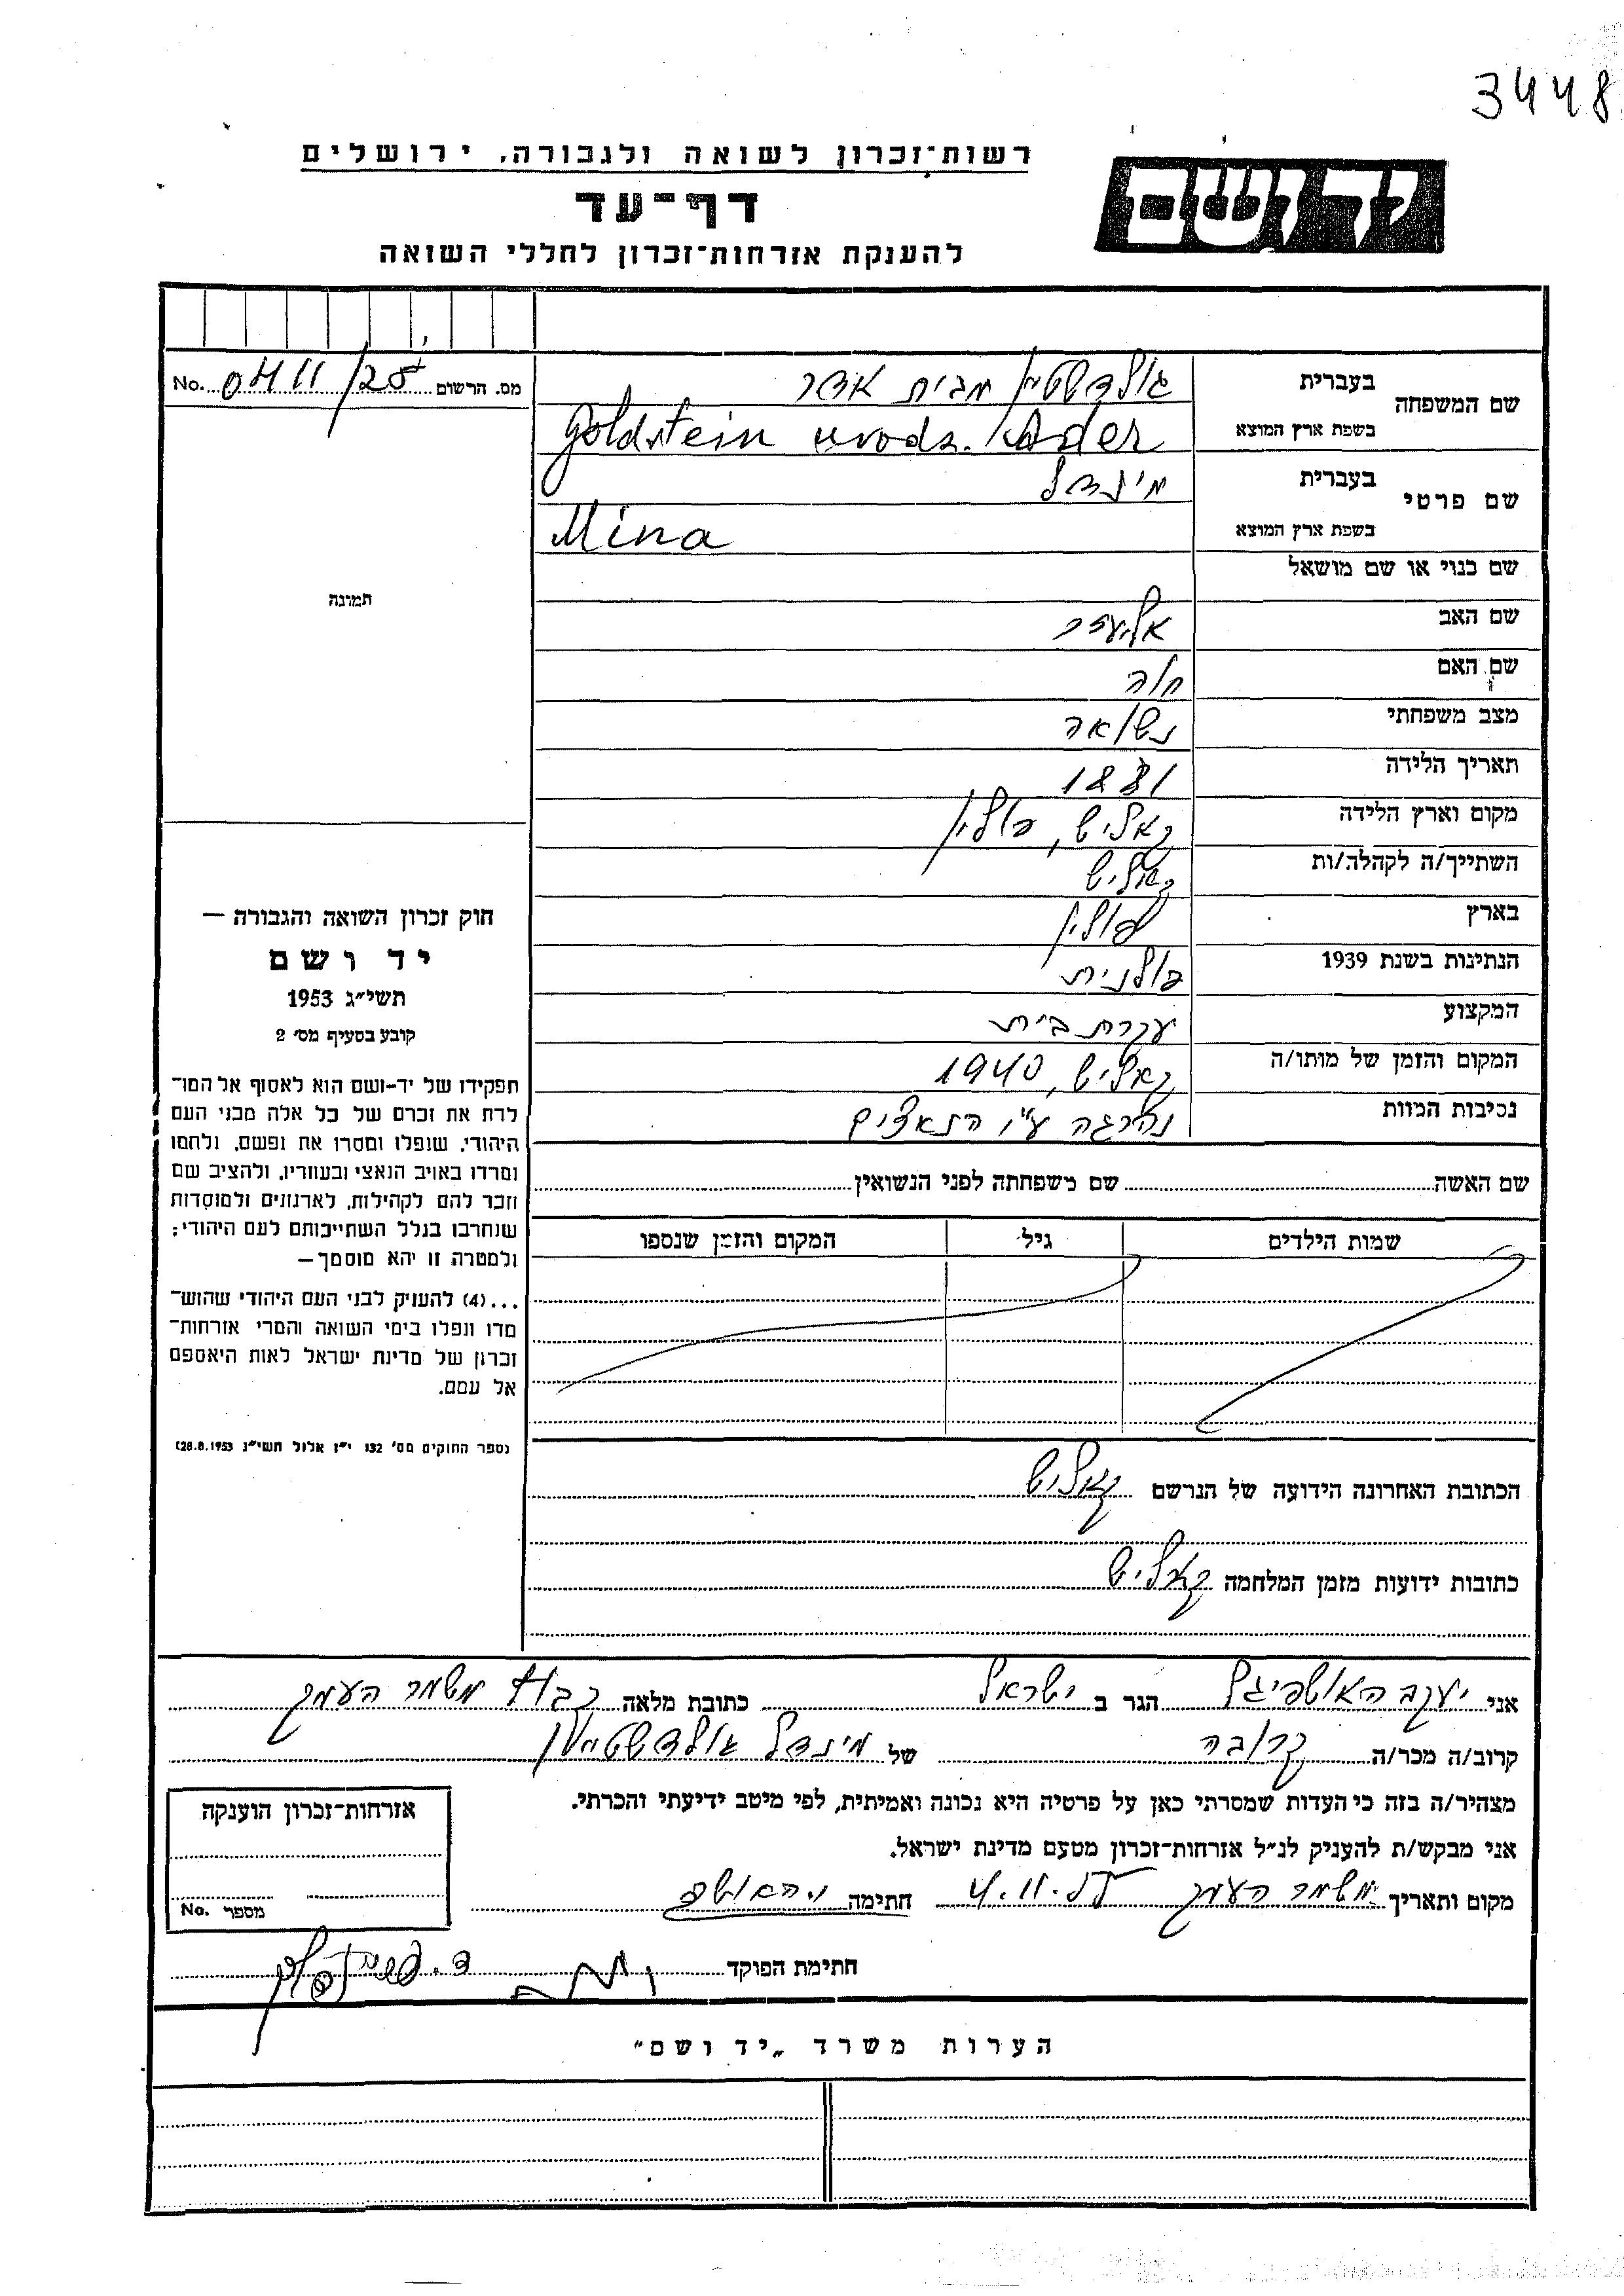 3448
רשות־זכרון לשואה ולגבורה, ירושלים
יד ושם
דף־עד
להענקת אזרחות־זכרון לחללי השואה
מס. הרשום 0411/25 No.
שם המשפחה
בעברית גולדשטיין מבית אדר
בשפת ארץ המוצא Goldstein urodz. Ader
שם פרטי
בעברית מינדל
בשפת ארץ המוצא Mina
שם כנוי או שם מושאל
שם האב אליעזר
שם האם חוה
מצב משפחתי נשואה
תאריך הלידה 1881
מקום וארץ הלידה קאליש, פולין
השתייך/ה לקהלה/ות קאליש
בארץ פולין
הנתינות בשנת 1939 פולנית
המקצוע עקרת בית
המקום והזמן של מותו/ה קאליש, 1940
נסיבות המוות נהרגה ע"י הנאצים
תמונה
חוק זכרון השואה והגבורה —
יד ושם
תשי״ג 1953
קובע בסעיף מס׳ 2
תפקידו של יד־ושם הוא לאסוף אל המו־
לדת את זכרם של כל אלה מבני העם
היהודי, שנפלו ומסרו את נפשם, נלחמו
ומרדו באויב הנאצי ובעוזריו, ולהציב שם
וזכר להם לקהילות, לארגונים ולמוסדות
שנחרבו בגלל השתייכותם לעם היהודי;
ולמטרה זו יהא מוסמך—
...(4) להעניק לבני העם היהודי שהוש־
מדו ונפלו בימי השואה והמרי אזרחות־
זכרון של מדינת ישראל לאות היאספם
אל עמם.
(ספר החוקים מס׳ 132 י״ז אלול תשי״ג 28.8.1953)
שם האשה שם משפחתה לפני הנשואין
שמות הילדים גיל המקום והזמן שנספו
הכתובת האחרונה הידועה של הנרשם קאליש
כתובות ידועות מזמן המלחמה קאליש
אני יעקב האושפיגל הגר ב ישראל כתובת מלאה קבוץ משמר העמק
קרוב/ה מכר/ה קרובה של מינדל גולדשטיין
מצהיר/ה בזה כי העדות שמסרתי כאן על פרטיה היא נכונה ואמיתית, לפי מיטב ידיעתי והכרתי.
אני מבקש/ת להעניק לנ״ל אזרחות־זכרון מטעם מדינת ישראל.
מקום ותאריך משמר העמק חתימה
אזרחות־זכרון הוענקה
מספר No.
חתימת הפוקד
הערות משרד „יד ושם״